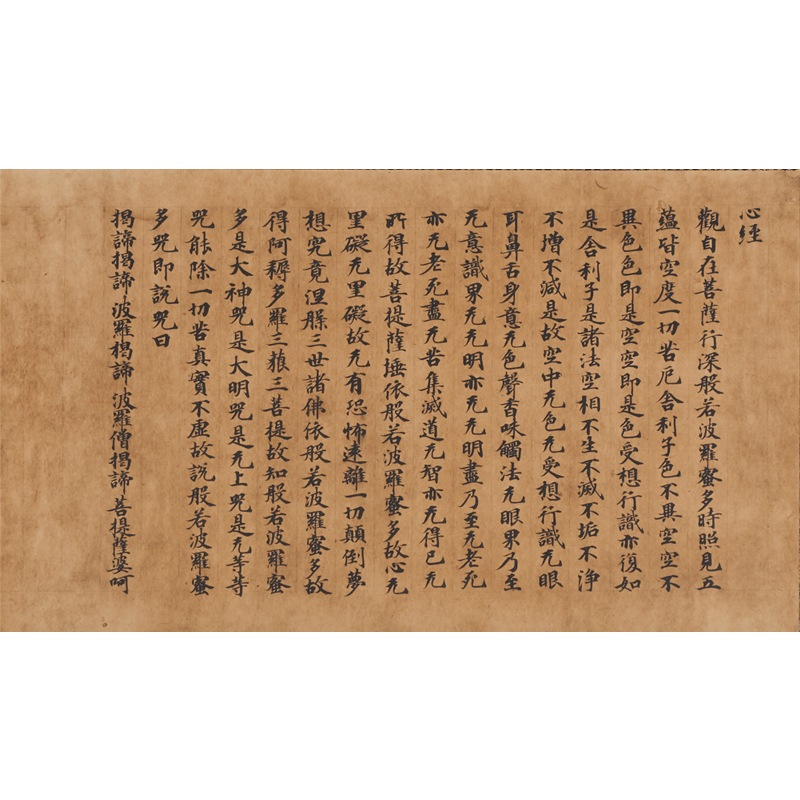 心經
觀自在菩薩行深般若波羅蜜多時照見五
蘊皆空度一切苦厄舍利子色不異空空不
異色色即是空空即是色受想行識亦復如
是舍利子是諸法空相不生不滅不垢不淨
不增不減是故空中无色无受想行識无眼
耳鼻舌身意无色聲香味觸法无眼界乃至
无意識界无无明亦无无明盡乃至无老死
亦无老死盡无苦集滅道无智亦无得已无
所得故菩提薩埵依般若波羅蜜多故心无
罣礙无罣礙故无有恐怖遠離一切顛倒夢
想究竟涅槃三世諸佛依般若波羅蜜多故
得阿耨多羅三藐三菩提故知般若波羅蜜
多是大神咒是大明咒是无上咒是无等等
咒能除一切苦真實不虛故說般若波羅蜜
多咒即說咒曰
揭諦揭諦波羅揭諦波羅僧揭諦菩提薩婆呵